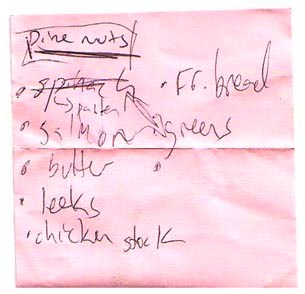 Pine nuts
• spinach • Fr. bread
• salmon greens
• butter •
• leeks
• chicken stock